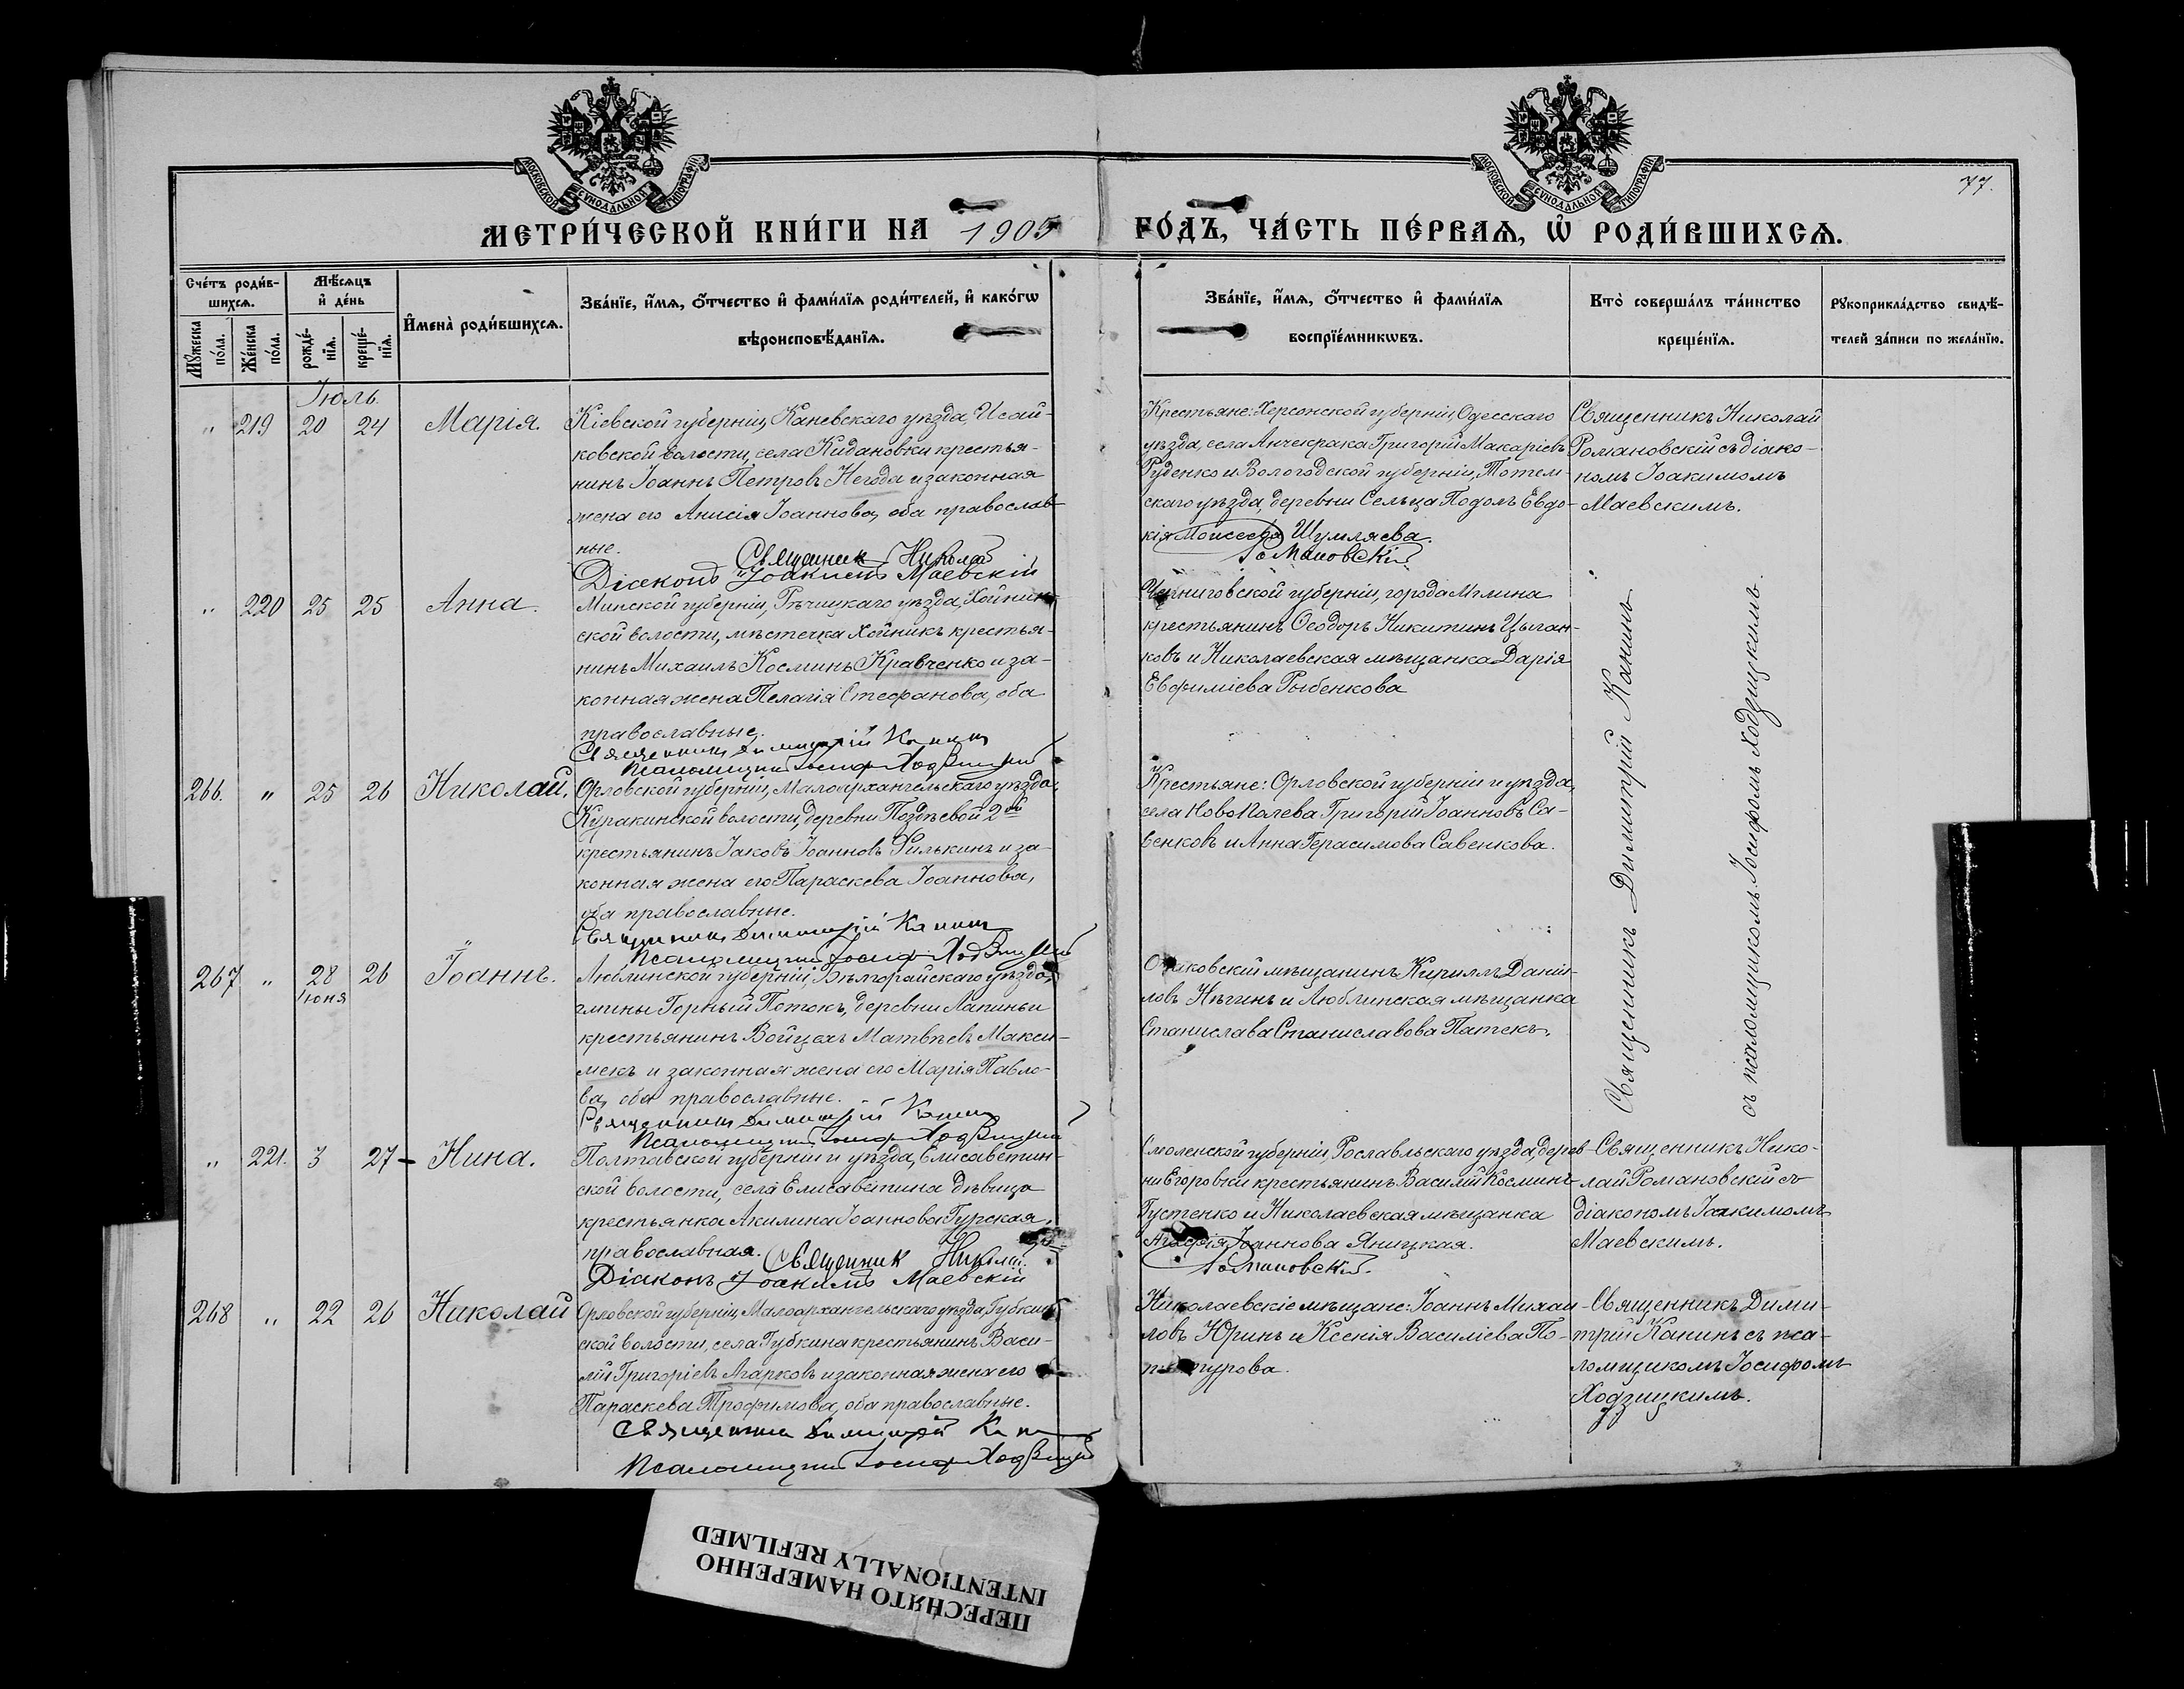 МОСКОВСКОЙ СѴНОДАЛЬНОЙ ТИПОГРАФІИ
МОСКОВСКОЙ СѴНОДАЛЬНОЙ ТИПОГРАФІИ
77.
МЕТРИ́ЧЕСКОЙ КНИ́ГИ НА 1905 ГО́ДЪ, ЧА́СТЬ ПЕ́РВАѦ, Ѡ҆ РОДИ́ВШИХСѦ.
Сче́тъ роди́в-
шихсѧ.
Мꙋ́жеска по́ла.
Же́нска по́ла.
Мѣ́сѧцъ
и҆ де́нь
рожде́-нїѧ.
креще́-нїѧ.
И҆мена̀ роди́вшихсѧ.
Зва́нїе, и҆́мѧ, ѻ҆́тчество и҆ фами́лїѧ роди́телей, и҆ како́гѡ
вѣроисповѣ́данїѧ.
Зва́нїе, и҆́мѧ, ѻ҆́тчество и҆ фами́лїѧ
воспрїе́мникѡвъ.
Кто̀ соверша́лъ та́инство
креще́нїѧ.
Рꙋкоприкла́дство свидѣ́-
телей за́писи по жела́нїю.
Іюль.
" 219 20 24 Марія.
Кіевской губерніи, Каневскаго уѣзда, Исай-
ковской волости, села Кидановки крестья-
нинъ Іоаннъ Петровъ Негода и законная
жена его Анисія Іоаннова, оба православ-
ные.
Священник Николай Романовскій
Діаконъ Іоакимъ Маевскій
Крестьяне: Херсонской губерніи, Одесскаго
уѣзда, села Анчекрака Григорій Макаріевъ
Руденко и Вологодской губерніи, Тотем-
скаго уѣзда, деревни Сельца Подолъ Евдо-
кія Моисеева Шумляева.
Священникъ Николай
Романовскій съ діако-
номъ Іоакимомъ
Маевскимъ.
" 220 25 25 Анна.
Минской губерніи, Рѣчицкаго уѣзда, Хойник-
ской волости, мѣстечка Хойникъ крестья-
нинъ Михаилъ Косминъ Кравченко и за-
конная жена Пелагія Стефанова, оба
православные.
Священникъ Димитрій Канинъ
Псаломщикъ Іосифъ Ходзицкій
Черниговской губерніи, города Мглина
крестьянинъ Ѳеодоръ Никитинъ Цыган-
ковъ и Николаевская мѣщанка Дарія
Евфиміева Рыбенкова
Священникъ Димитрій Канинъ
съ псаломщикомъ Іосифомъ Ходзицкимъ.
266. " 25 26 Николай.
Орловской губерніи, Малоархангельскаго уѣзда,
Куракинской волости, деревни Поздѣевой 2ой
крестьянинъ Іаковъ Іоанновъ Филькинъ и за-
конная жена его Параскева Іоаннова,
оба православные.
Священникъ Димитрій Канинъ
Псаломщикъ Іосифъ Ходзицкій
Крестьяне: Орловской губерніи и уѣзда,
села Ново Полева Григорій Іоанновъ Са-
венковъ и Анна Герасимова Савенкова.
267 " 28 Іюня 26 Іоаннъ.
Люблинской губерніи, Бѣлгорайскаго уѣзда,
гмины Горный Потокъ, деревни Лапиньи
крестьянинъ Войцехъ Матвѣевъ Макси-
мекъ и законная жена его Марія Павло-
ва, оба православные.
Священникъ Димитрій Канинъ
Псаломщикъ Іосифъ Ходзицкій
Очаковскій мѣщанинъ Кириллъ Даніи-
ловъ Нѣгинъ и Люблинская мѣщанка
Станислава Станиславова Патекъ.
" 221. 3 27 Нина.
Полтавской губерніи и уѣзда, Елисаветин-
ской волости, села Елисаветина дѣвица
крестьянка Акилина Іоаннова Гурская,
православная.
Священник Николай Романовскій.
Діаконъ Іоакимъ Маевскій
Смоленской губерніи, Рославльскаго уѣзда, дерев-
ни Егоровки крестьянинъ Василій Косминъ
Густенко и Николаевская мѣщанка
Агафія Іоаннова Яницкая.
Священникъ Нико-
лай Романовскій съ
діакономъ Іоакимомъ
Маевскимъ.
268 " 22 26 Николай
Орловской губерніи, Малоархангельскаго уѣзда, Губкин-
ской волости, села Губкина крестьянинъ Васи-
лій Григоріевъ Агарковъ и законная жена его
Параскева Трофимова, оба православные.
Священникъ Димитрій Канинъ
Псаломщикъ Іосифъ Ходзицкій
Николаевскіе мѣщане: Іоаннъ Михаи-
ловъ Юринъ и Ксенія Василіева По-
Священникъ Дими-
трій Канинъ съ пса-
ломщикомъ Іосифомъ
Ходзицкимъ.
ПЕРЕСНЯТО НАМЕРЕННО
INTENTIONALLY REFILMED